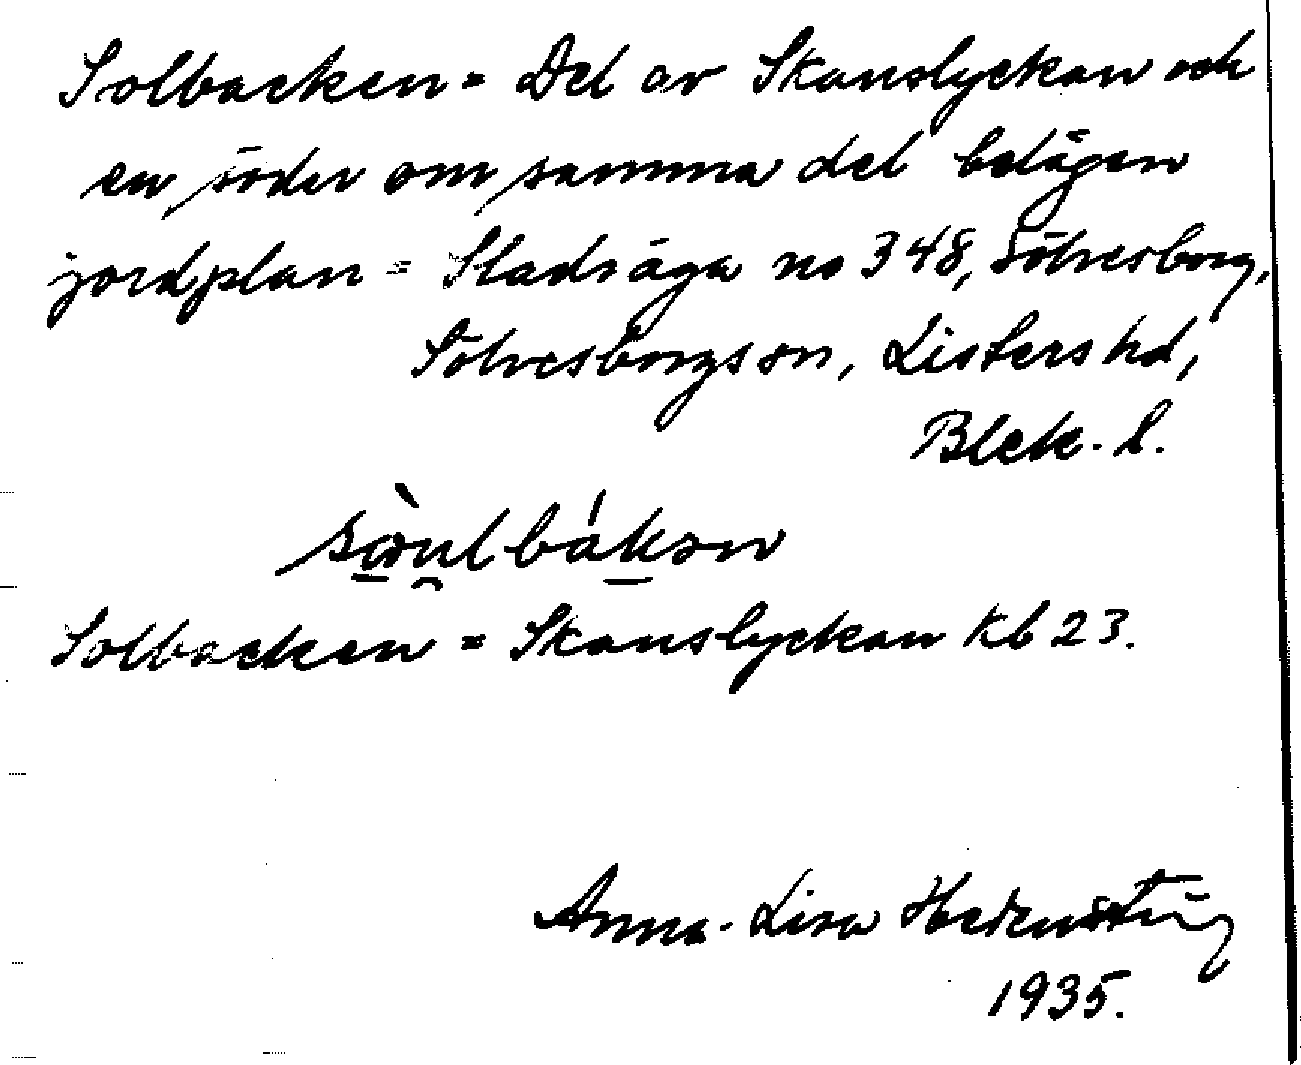 Solbacken = Del av Skanslyckan och
en söder om samma del belägen
jordplan = Stadsäga no 348, Sölvesborg,
Sölvesborgs sn, Listers hd,
Blek. l.
Solbacken = Skanslyckan Kb 23.
Anna-Lisa
1935.